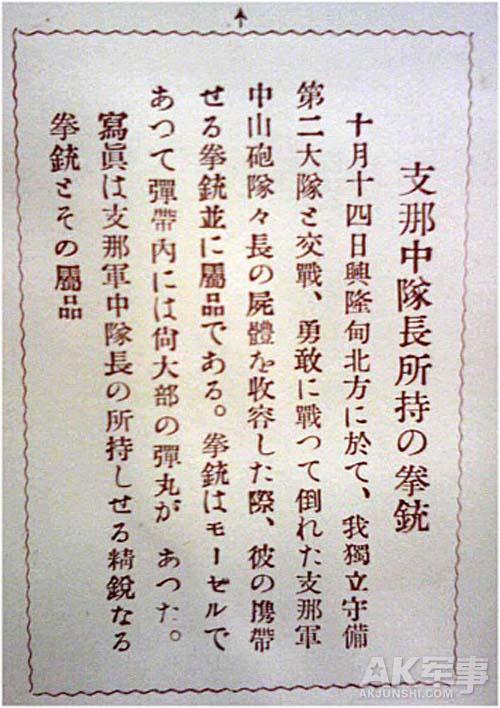 支那中隊長所持の拳銃
十月十四日興隆甸北方に於て、我獨立守備
第二大隊と交戰、勇敢に戰つて倒れた支那軍
中山砲隊々長の屍體を收容した際、彼の攜帶
せる拳銃並に屬品である。拳銃はモーゼルで
あつて彈帶內には尙大部の彈丸が あつた。
寫眞は支那軍中隊長の所持しせる精銳なる
拳銃とその屬品
AK军事
AKJUNSHI.COM